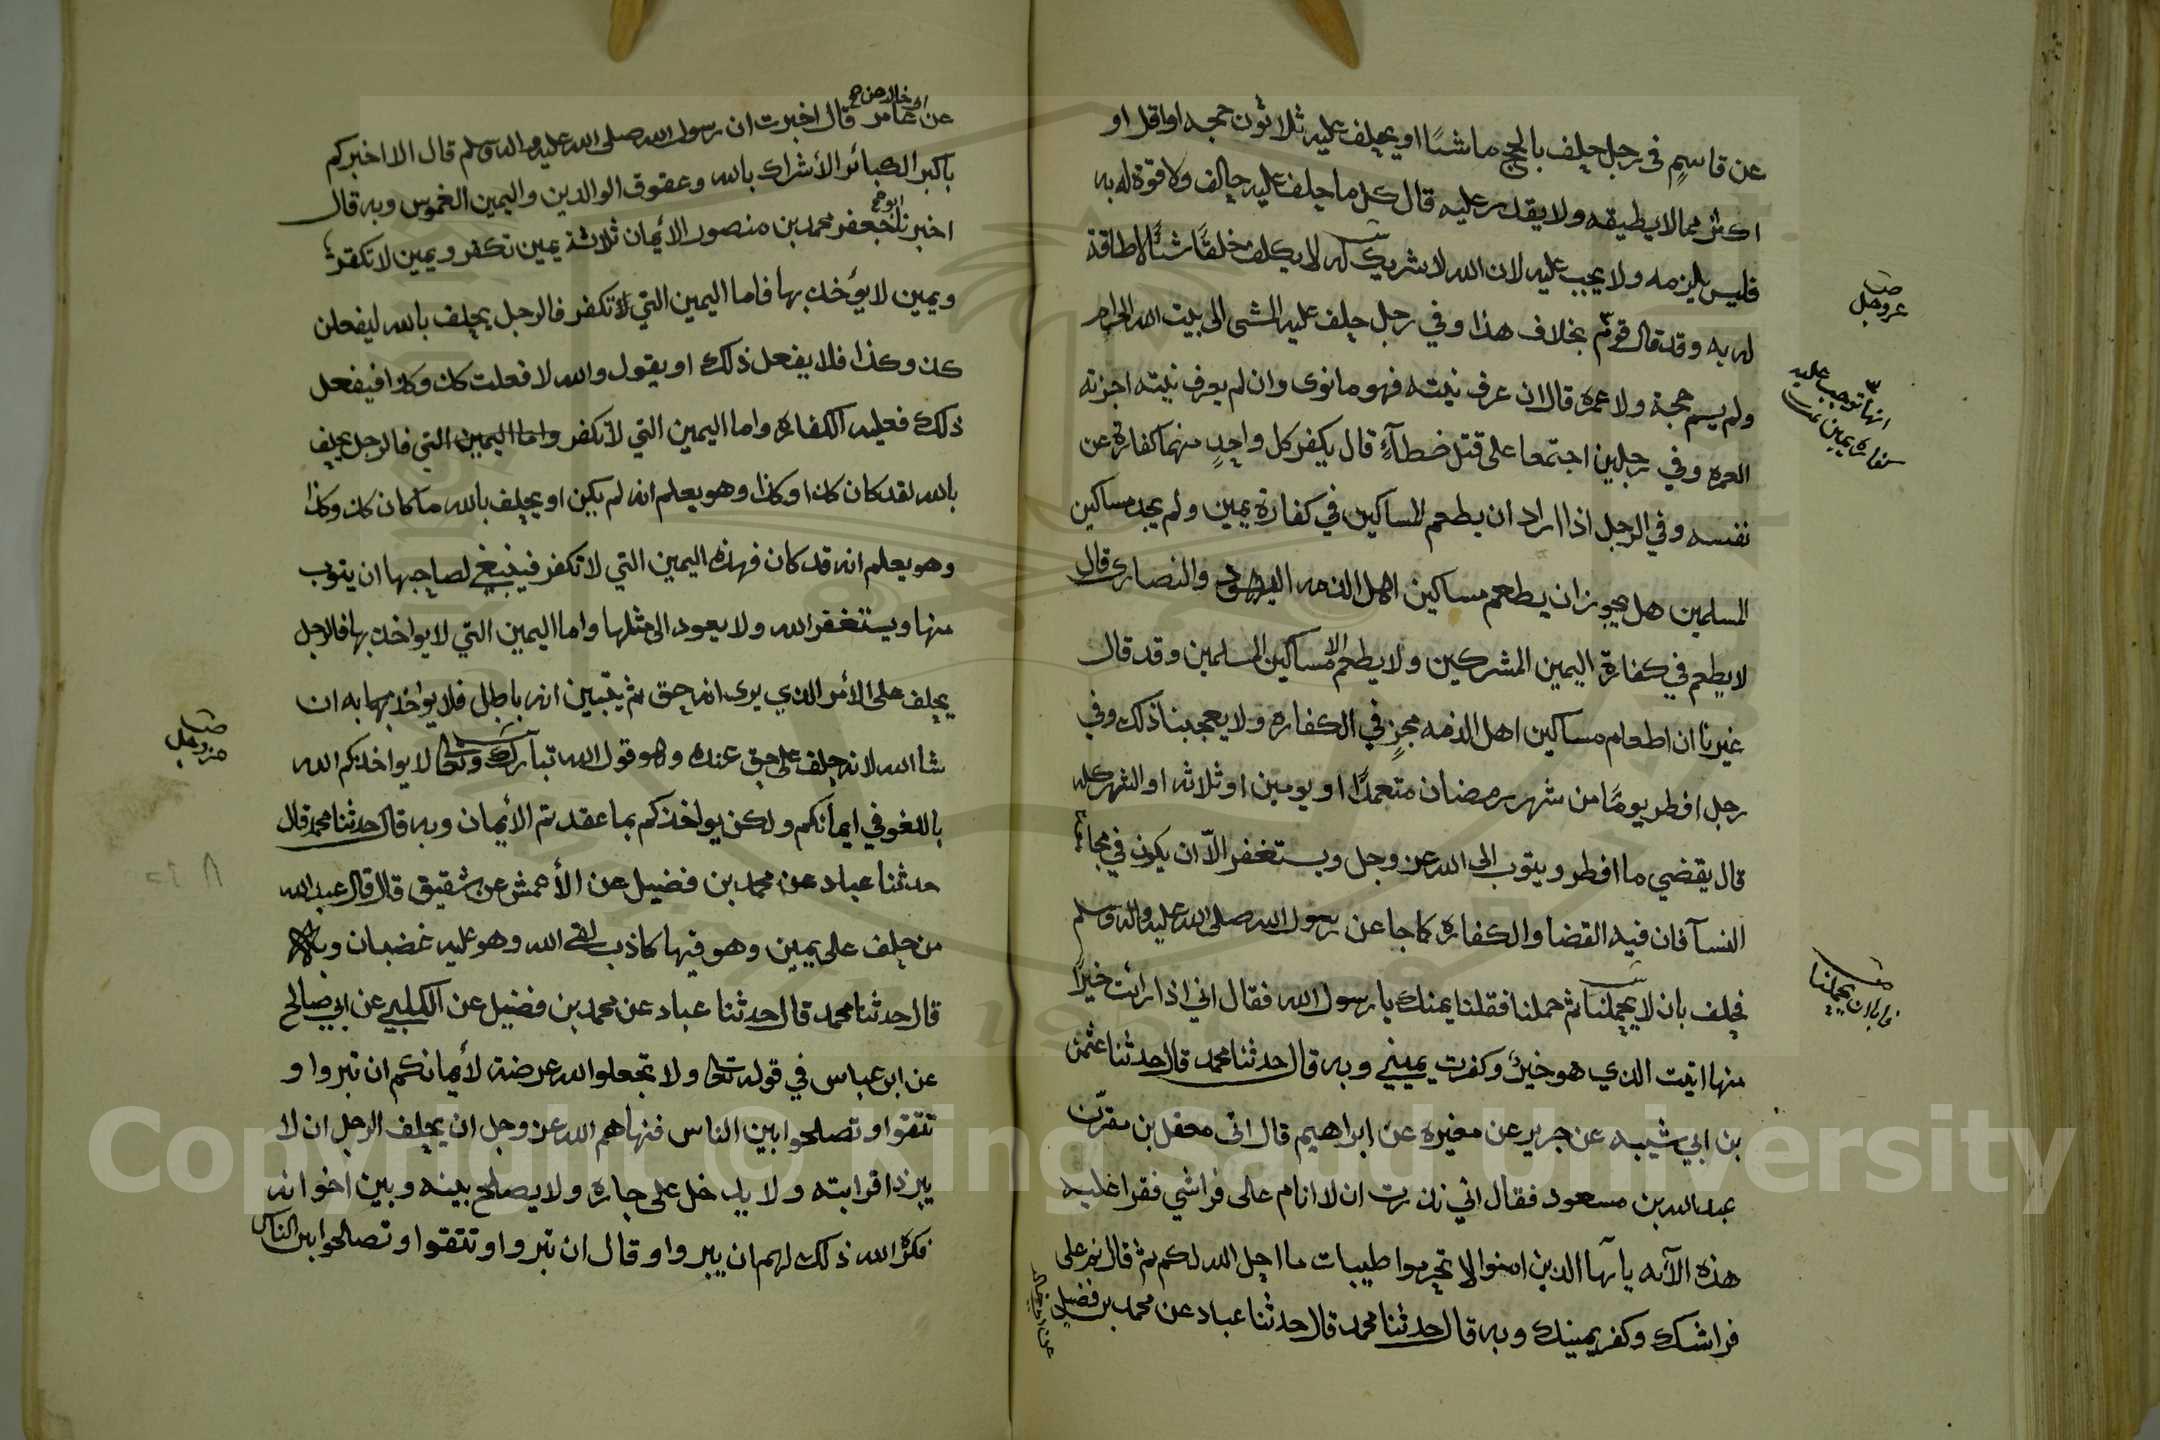 عن قاسمٍ في رجل حلف بالحج ماشيًا او يحلف عليه ثلاثون حجه او اقل او
اكثر مما لا يطيقه ولا يقدر عليه قال كل ما حلف عليه حالف ولا قوة له به
فليس يلزمه ولا يجب عليه لان الله لا شريك له لا يكلف خلقًا شيًا لا طاقة
له به وقد قال قومٌ بخلاف هذا وفي رجل حلف عليه المشى الى بيت الله الحرام
ولم يسم حجة ولا عمرة قال ان عرف نيته فهو ما نوى وان لم يعرف نيته اجزته
العمره وفي رجلين اجتمعا على قتل خطآءٍ قال يكفر كل واحدٍ منهما كفارة عن
نفسه وفي الرجل اذا اراد ان يطعم المساكين في كفارة يمين ولم يجد مساكين
المسلمين هل يجوز ان يطعم مساكين اهل الذمه اليهود والنصارى قال
لا يطعم في كفارة اليمين المشركين ولا يطعم الا مساكين المسلمين وقد قال
غيرنا ان اطعام مساكين اهل الذمه مجزٍ في الكفاره ولا يعجبنا ذلك وفي
رجل افطر يومًا من شهر رمضان متعمدًا او يومين او ثلاثه او الشهر كله
قال يقضي ما افطر ويتوب الى الله عز وجل ويستغفر الّا ان يكون في مجامعة
النسآ فان فيه القضا والكفاره كما جا عن رسول الله صلى الله عليه واله وسلم
فحلف بان لا يحملنا ثم حملنا فقلنا يمنك يا رسول الله فقال اني اذا رايت خيرًا
منها اتيت الذي هو خيرٌ وكفرت يميني وبه قال حدثنا محمد قال حدثنا عثمن
بن ابي شيبه عن جرير عن مغيره عن ابراهيم قال اتى معقل بن مقرّن
عبد الله بن مسعود فقال اني نذرت ان لا انام على فراشي فقرا عليه
هذه الآيه يآيها الذين امنوا لا تحرموا طيبات ما احل الله لكم ثم قال نم على
فراشك وكفر يمينك وبه قال حدثنا محمد قال حدثنا عباد عن محمد بن فضيل
عز وجل
عن عامر قال اخبرت ان رسول الله صلى الله عليه واله وسلم قال الا اخبركم
باكبر الكبائر الأشراك بالله وعقوق الوالدين واليمين الغموس وبه قال
اخبرنا ابو جعفر محمد بن منصور الأيمان ثلاثة يمين تكفر ويمين لا تكفر
ويمين لا يؤخذ بها فاما اليمين التي تكفر فالرجل يحلف بالله ليفعلن
كذا وكذا فلا يفعل ذلك او يقول والله لا فعلت كذا وكذا فيفعل
ذلك فعليه الكفاره واما اليمين التي لا تكفر واما اليمين التي فالرجل يحلف
بالله لقد كان كذا وكذا وهو يعلم انه لم يكن او يحلف بالله ما كان كذا وكذا
وهو يعلم انه قد كان فهذه اليمين التي لا تكفر فينبغي لصاحبها ان يتوب
منها ويستغفر الله ولا يعود الى مثلها واما اليمين التي لا يواخذ بها فالرجل
يحلف على الأمر الذي يرى انه حق ثم يتبين انه باطل فلا يواخذ به ان
شا الله لانه حلف على حق عنده وهو قول الله تبارك وتعالى لا يواخذكم الله
باللغو في ايمانكم ولكن يواخذكم بما عقدتم الأيمان وبه قال حدثنا محمد قال
حدثنا عباد عن محمد بن فضيل عن الأعمش عن شقيق قال قال عبد الله
من حلف على يمين وهو فيها كاذب لقى الله وهو عليه غضبان وبه
قال حدثنا محمد قال حدثنا عباد عن محمد بن فضيل عن الكلبي عن ابي صالح
عن ابن عباس في قوله تعالى ولا تجعلوا الله عرضة لأيمانكم ان تبروا و
تتقوا وتصلحوا بين الناس فنهاهم الله عز وجل ان يحلف الرجل ان لا
يبر ذا قرابته ولا يدخل على جاره ولا يصلح بينه وبين اخوانه
فكره الله ذلك لهم ان يبروا وقال ان تبروا وتتقوا وتصلحوا بين الناس
عز وجل
Copyright © King Saud University